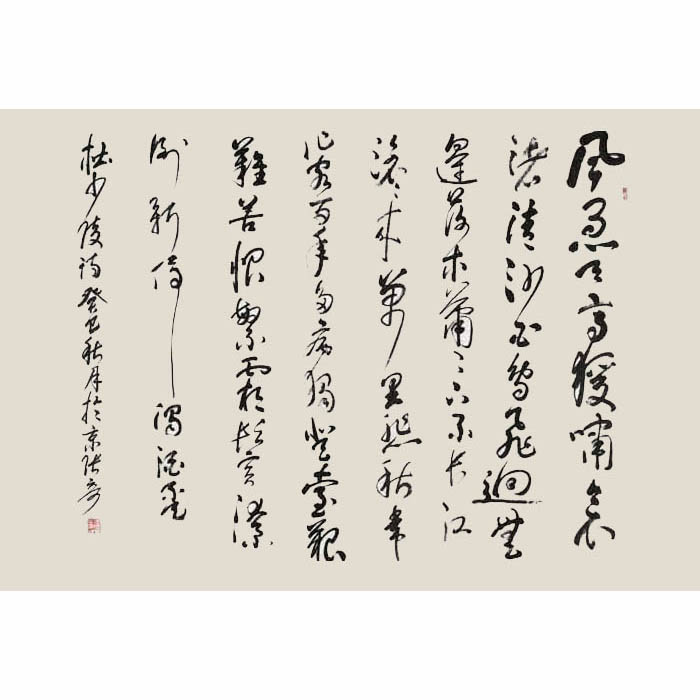 風急天高猨嘯哀
渚清沙白鳥飛迴無
邊落木蕭〻下不長江
滾〻来萬里悲秋常
作客百年多病獨登臺艱
難苦恨繁霜鬢潦
倒新停濁酒杯
杜少陵詩癸巳秋月於京張奇